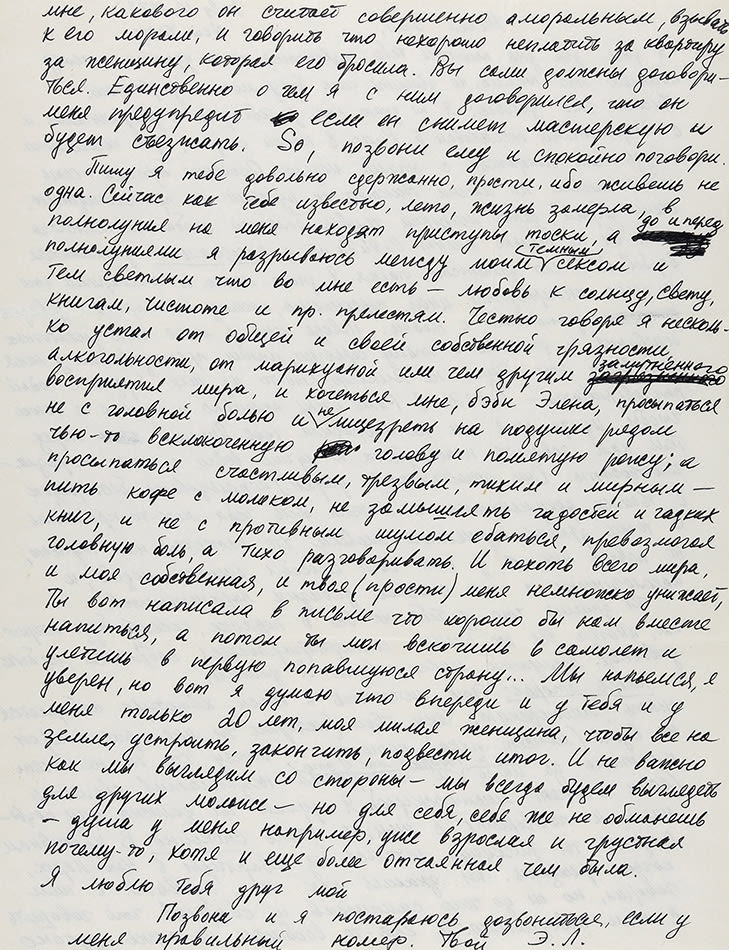 мне, какового он считает совершенно аморальным, взывать
к его морали, и говорить что нехорошо неплатить за квартиру
за женщину, которая его бросила. Вы сами должны договори-
ться. Единственно о чем я с ним договорился, что он
меня предупредит если он снимет мастерскую и
будет съезжать. So, позвони ему и спокойно поговори.
Пишу я тебе довольно сдержанно, прости, ибо живешь не
одна. Сейчас как тебе известно, лето, жизнь замерла, в
полнолуния на меня находят приступы тоски, а до и перед
полнолуниями я разрываюсь между моим темным сексом и
тем светлым что во мне есть — любовь к солнцу, свету,
книгам, чистоте и пр. прелестям. Честью говоря я несколь-
ко устал от общей и своей собственной грязности,
алкогольности, от марихуаной или чем другим замутненного
восприятия мира, и хочеться мне, бэби Элена, просыпаться
не с головной болью и не лицезреть на подушке рядом
чью-то всклокоченную голову и помятую рожу; а
просыпаться счастливым, трезвым, тихим и мирным —
пить кофе с молоком, не замышлять гадостей и гадких
книг, и не с противным шумом ебаться, превозмогая
головную боль, а тихо разговаривать. И похоть всего мира,
и моя собственная, и твоя (прости) меня немножко унижает,
Ты вот написала в письме что хорошо бы нам вместе
напиться, а потом ты мол вскочишь в самолет и
улетишь в первую попавшуюся страну... Мы напьемся, я
уверен, но вот я думаю что впереди и у тебя и у
меня только 20 лет, моя милая женщина, чтобы все на
земле, устроить, закончить, подвести итог. И не важно
как мы выглядим со стороны — мы всегда будем выглядеть
для других моложе — но для себя, себе же не обманешь
— душа у меня например, уже взрослая и грустная
почему-то, хотя и еще более отчаянная чем была.
Я люблю тебя друг мой
Позвони и я постараюсь дозвониться, если у
меня правильный номер. Твой Э.Л.